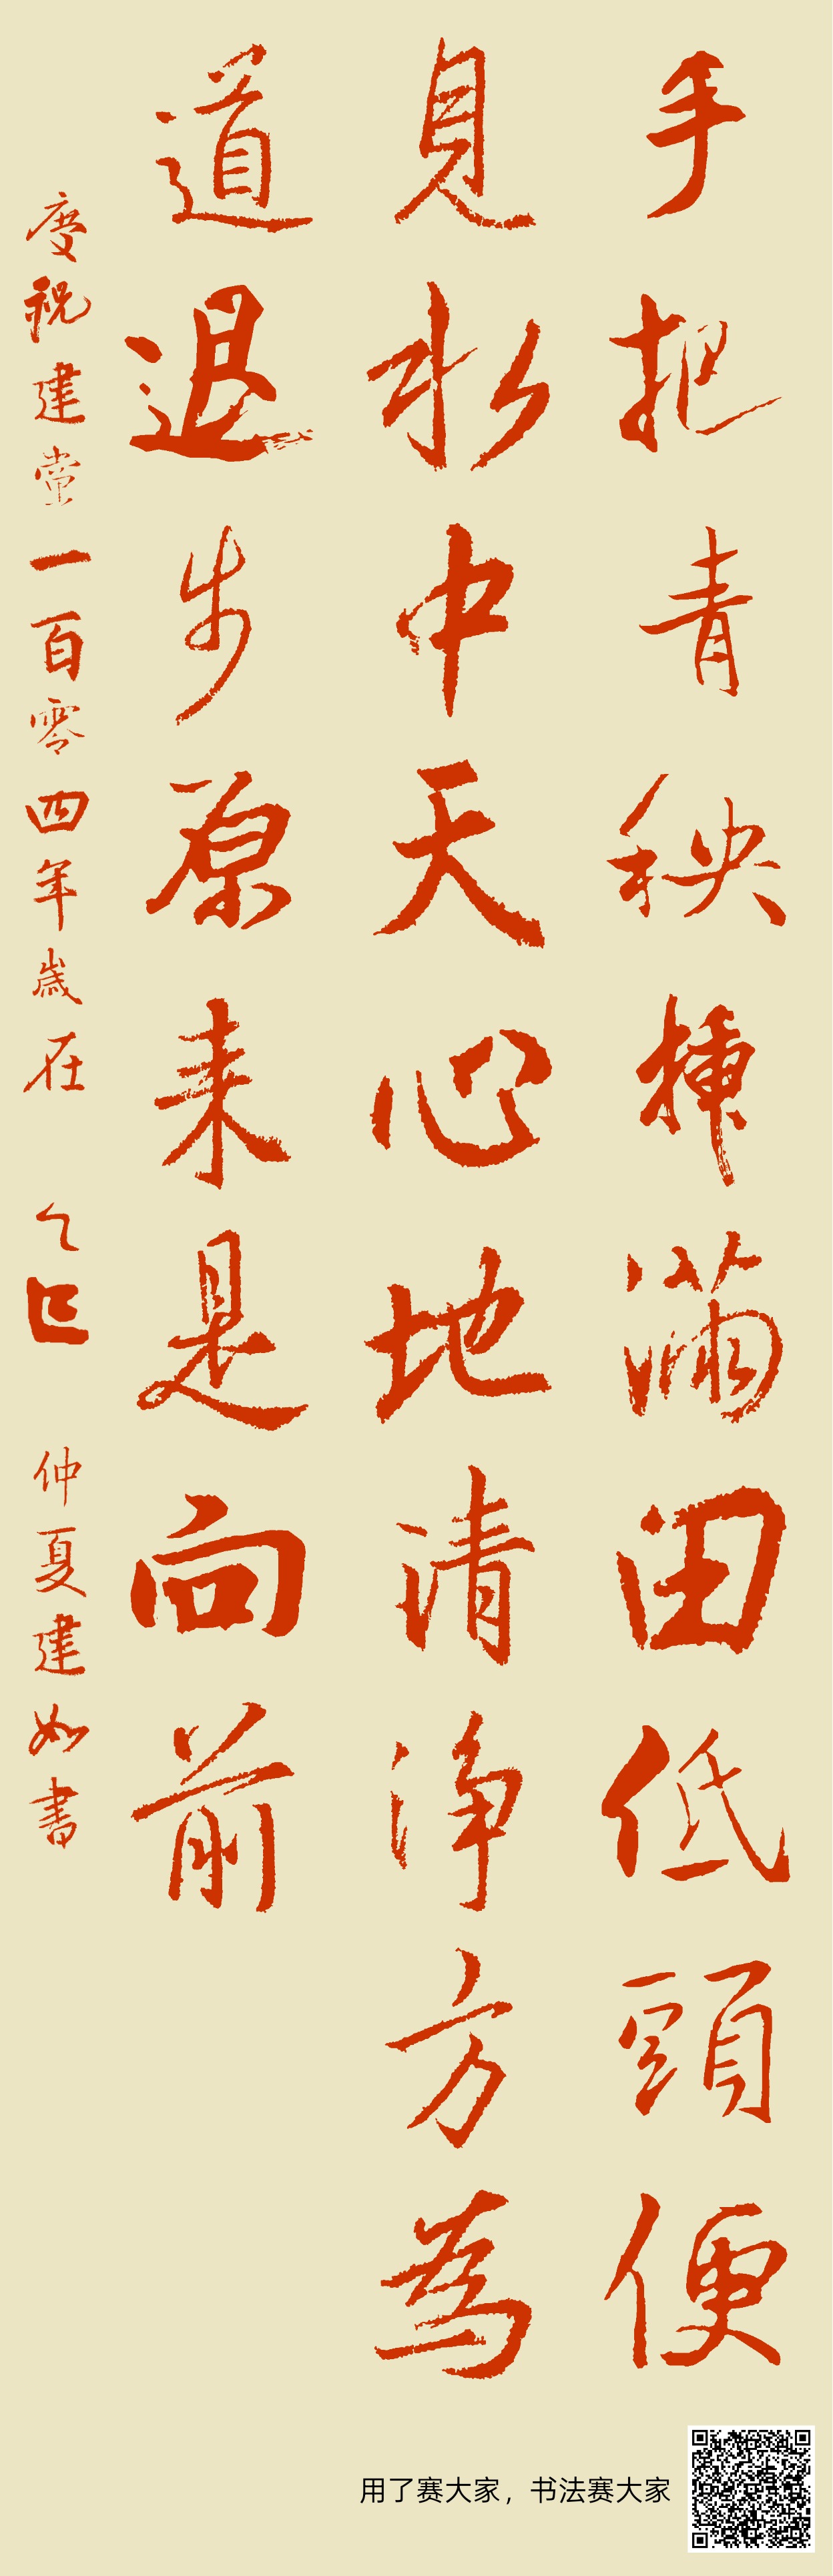 手把青秧插滿田低頭便
見水中天心地清淨方為
道退步原来是向前
慶祝建堂一百零四年歲在 乙巳 仲夏建如書
用了赛大家，书法赛大家